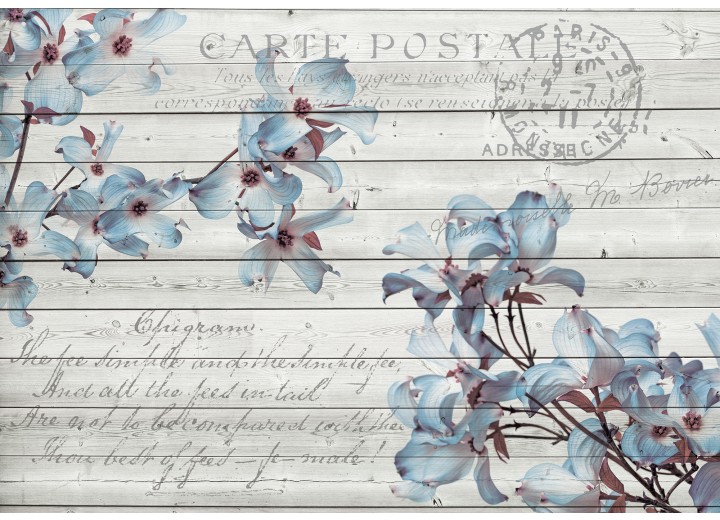 CARTE POSTALE
Tous les Pays étrangers n'acceptant pas la
correspondance au recto (se renseigner à la poste)
PARIS
9
2 - 7
11
ADRESSE
M. Bovier
Epigram.
The fee simple and the simple fee,
And all the fees in tail
Are not to be compared with thee
Thou best of fees - fe-male!